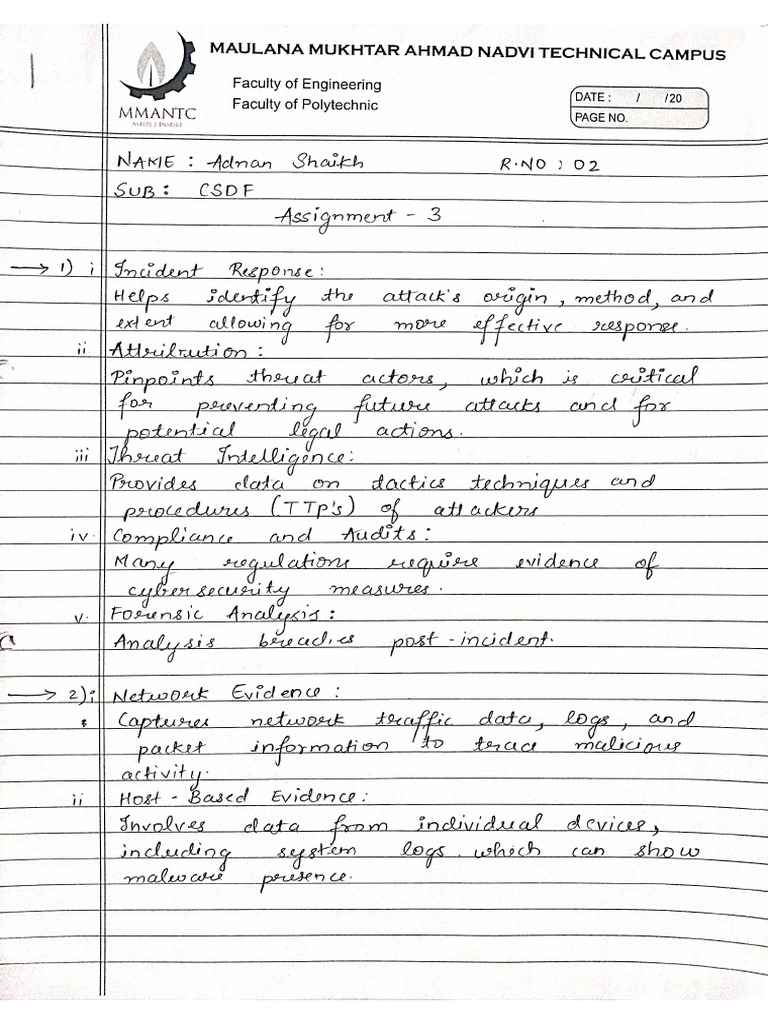 1
MAULANA MUKHTAR AHMAD NADVI TECHNICAL CAMPUS
Faculty of Engineering
Faculty of Polytechnic
MMANTC
ASPIRE | INSPIRE
DATE : / /20
PAGE NO.
NAME : Adnan Shaikh R.NO : 02
SUB : CSDF
Assignment - 3
→ 1) i Incident Response :
Helps identify the attack's origin, method, and
extent allowing for more effective response.
ii Attribution :
Pinpoints threat actors, which is critical
for preventing future attacks and for
potential legal actions.
iii Threat Intelligence :
Provides data on tactics techniques and
procedures (TTP's) of attackers
iv. Compliance and Audits :
Many regulations require evidence of
cybersecurity measures.
v. Forensic Analysis :
Analysis breaches post-incident.
→ 2) i Network Evidence :
Captures network traffic data, logs, and
packet information to trace malicious
activity.
ii Host-Based Evidence :
Involves data from individual devices,
including system logs. which can show
malware presence.